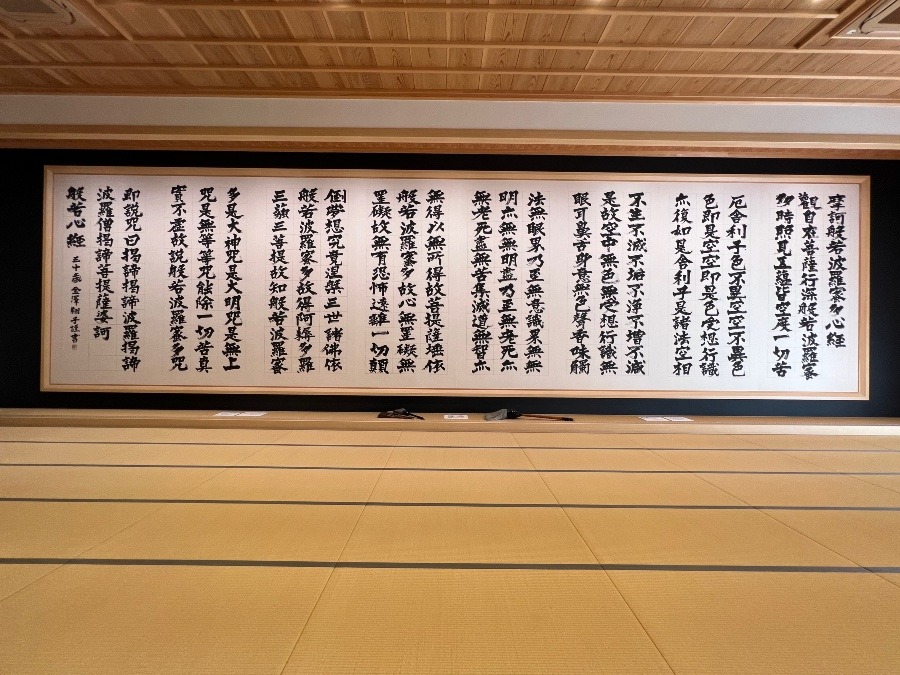 摩訶般若波羅蜜多心経
観自在菩薩行深般若波羅蜜
多時照見五蘊皆空度一切苦
厄舎利子色不異空空不異色
色即是空空即是色受想行識
亦復如是舎利子是諸法空相
不生不滅不垢不浄不増不減
是故空中無色無受想行識無
眼耳鼻舌身意無色声香味触
法無眼界乃至無意識界無無
明亦無無明尽乃至無老死亦
無老死尽無苦集滅道無智亦
無得以無所得故菩提薩埵依
般若波羅蜜多故心無罣礙無
罣礙故無有恐怖遠離一切顛
倒夢想究竟涅槃三世諸佛依
般若波羅蜜多故得阿耨多羅
三藐三菩提故知般若波羅蜜
多是大神咒是大明咒是無上
咒是無等等咒能除一切苦真
実不虚故説般若波羅蜜多咒
即説咒曰揭諦揭諦波羅揭諦
波羅僧揭諦菩提薩婆訶
般若心経 三十歳 金澤翔子謹書